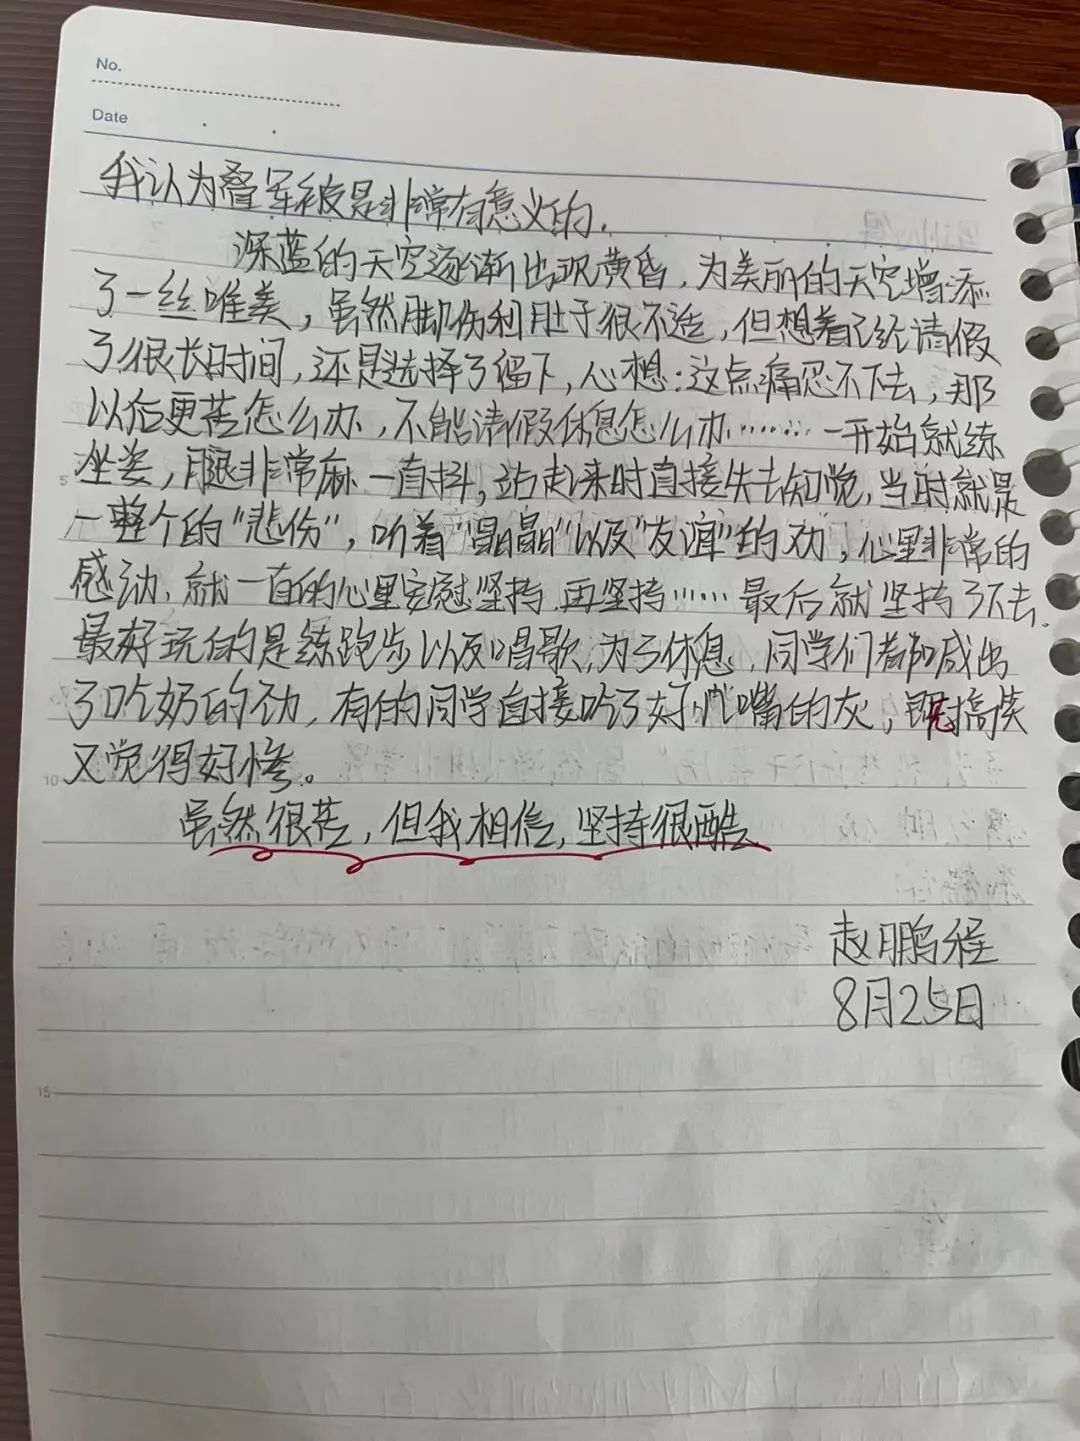 No.
Date
我认为叠军被是非常有意义的.
深蓝的天空逐渐出现黄昏,为美丽的天空增添
了一丝唯美,虽然脚伤和肚子很不适,但想着已经请假
了很长时间,还是选择了留下,心想:这点痛忍不下去,那
以后更苦怎么办,不能请假休息怎么办……一开始就练
坐姿,腿非常麻一直抖,站起来时直接失去知觉,当时就是
一整个的"悲伤",听着"晶晶"以及"友谊"的劝,心里非常的
5
感动,就一直的心里安慰坚持.再坚持……最后就坚持了下去.
最好玩的是练跑步以及唱歌,为了休息,同学们都喊出
了吃奶的劲,有的同学直接吃了好几嘴的灰,既搞笑
又觉得好惨。
10
虽然很苦,但我相信,坚持很酷
赵鹏程
8月25日
15